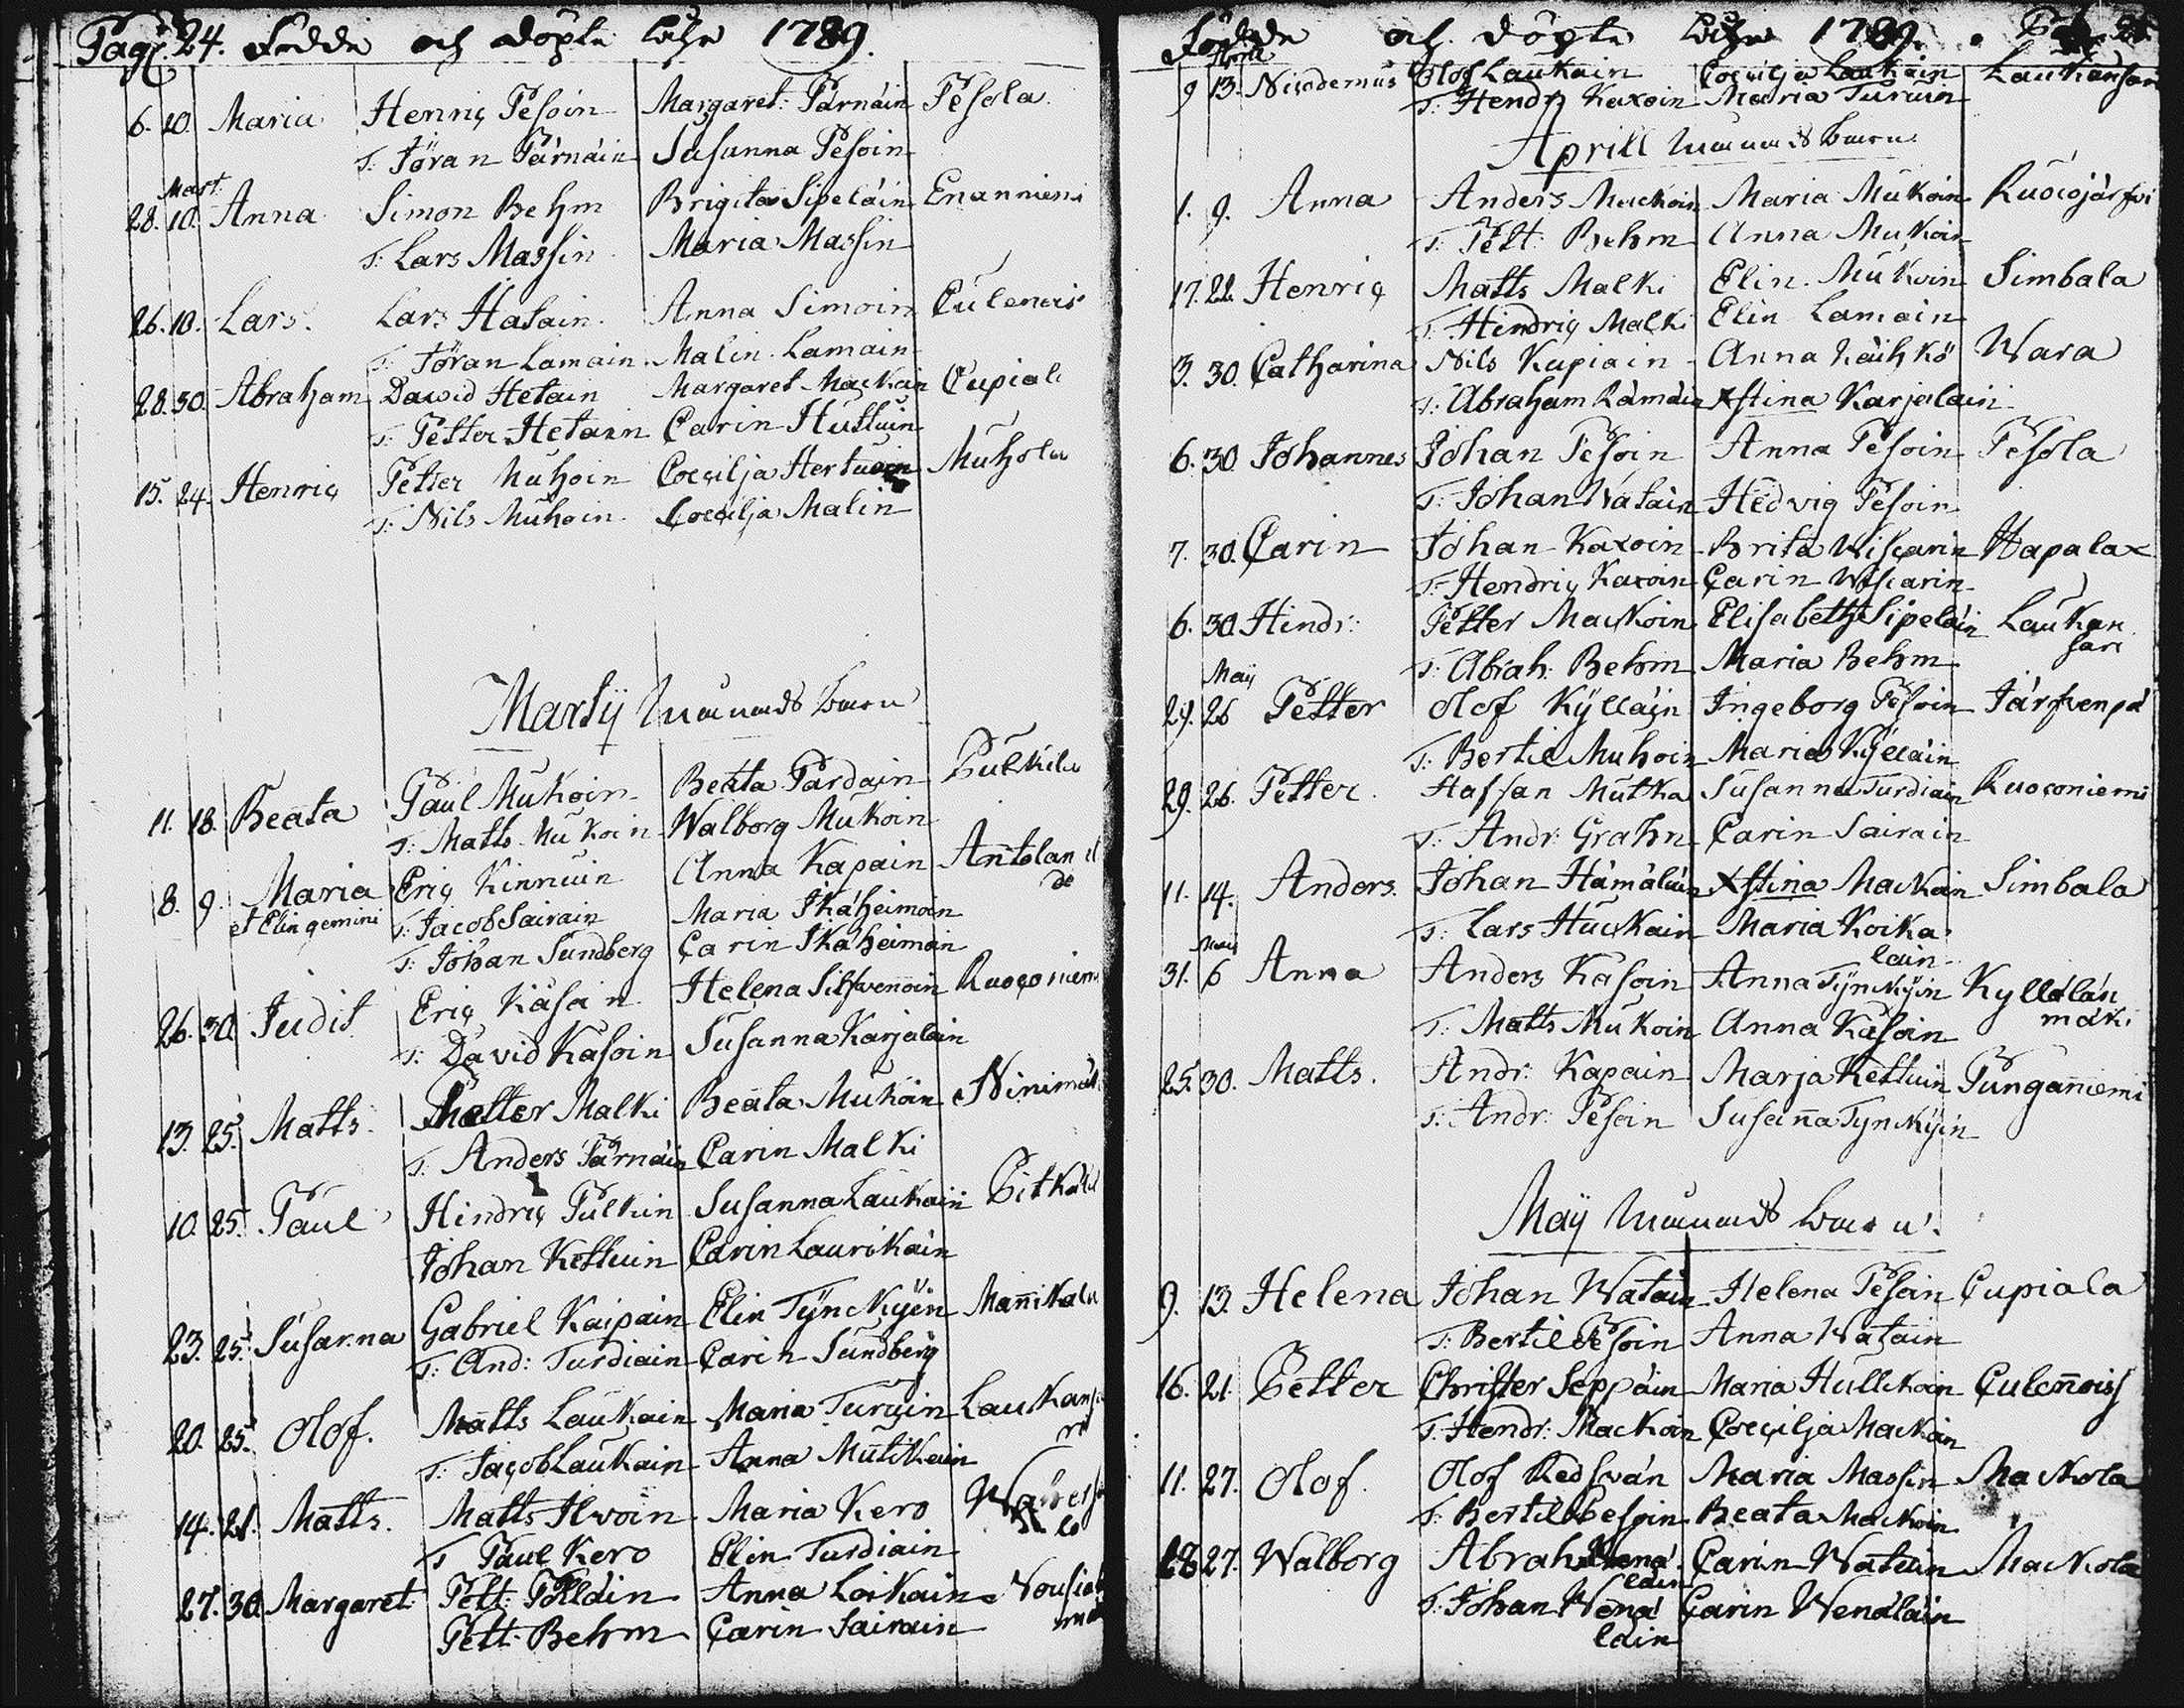 Pag. 24. Födde och döpte åhr 1789.
6. 10. Maria Henriç Pesoin Margaret: Pärnäin Pesola
T: Jöran Pärnäin Susanna Pesoin
Mart:
28. 10. Anna Simon Behm Brigita Sipeläin Enanniemi
T: Lars Massin Maria Massin
26. 10. Lars. Lars Hasain Anna Simoin Culenois
T: Jöran Lamain Malin Lamain
28. 30. Abraham David Hetain Margaret Mackoin Cupiala
T: Petter Hetain Carin Huttuin
15. 24. Henriç Petter Muhoin Coecilja Hertuoin Muhola
T: Nils Muhoin Coecilja Malin
Martij Månads barn
11. 18. Beata Paul Mukoin Beata Pardain Pulkila
T: Matts Mukoin Walborg Mukoin
8. 9. Maria Eriç Kinnuin Anna Kapain Antolan
et Elin gemini T: Jacob Sairain Maria Ikäheimoin
T: Johan Sundberg Carin Ikäheimoin
26. 30. Judit Eriç Käsoin Helena Silfvenoin Ruoconiemi
T: David Käsoin Susanna Karjalain
13. 25. Matts. Petter Malki Beata Mukoin Ninimäk
T: Anders Pärnäin Carin Malki
10. 25. Paul Hindriç Pulkin Susanna Laukain Pitkälä
Johan Kettuin Carin Laurikain
23. 25. Susanna Gabriel Kaipain Elin Tynckyin Mannikala
T: And: Turdiain Carin Sundberg
20. 25. Olof. Matts Laukain Maria Turuin Laukansa
ri
T: Jaçob Laukain Anna Mutikain
14. 21. Matts. Matts Ilvoin Maria Kero
T Paul Kero Elin Turdiain
27. 30. Margaret Pett: Pöllain Anna Loikain Vousia
mä
Pett: Behm Carin Sairain
Födde och döpte åhr 1789. Pag. 25
April
9 13. Nicodemus Olof Laukain Coecilja Laukain Laukansari
T: Hendr Kaxoin Maria Turuin
Aprill Månads barn
1. 9. Anna Anders Mackoin Maria Mukoin Ruocojärfvi
T: Pett: Behm Anna Mukoin
17. 22. Henriç Matts Malki Elin Mukoin Simbala
T: Hindriç Malki Elin Lamain
3. 30. Catharina Nils Kupiain Anna Käihkö Wara
T: Abraham Rämäin Xstina Karjalain
6. 30. Johannes Johan Pesoin Anna Pesoin Pesola
T: Johan Watain Hedvig Pesoin
7. 30. Carin Johan Kaxoin Brita Wiscarin Hapalax
T: Hendriç Kaxoin Carin Wiscarin
6. 30. Hindr: Petter Mackoin Elisabeth Sipeläin Laukan
sari
T: Abrah: Behm Maria Behm
Maij
29. 26 Petter Olof Kylläin Ingeborg Pesoin Järfvenpä
T: Bertil Muhoin Maria Kylläin
29. 26. Petter. Staffan Mutka Susanna Turdiain Ruoconiemi
T: Andr: Grahn Carin Sairain
11. 14. Anders. Johan Hämäläin Xstina Mackoin Simbala
T: Lars Huckain Maria Koika
lain
Maij
31. 6 Anna Anders Käsoin Anna Tynckyin Kyllälän
mäki
T: Matts Mukoin Anna Käsoin
25. 30. Matts. Andr: Kapain Marja Kettuin Punganniemi
T: Andr: Pesoin Susanna Tynckyin
Maij Månads barn.
9. 13. Helena Johan Watain Helena Pesoin Cupiala
T: Bertil Pesoin Anna Watain
16. 21. Petter Christer Seppäin Maria Hullckoin Culennoiss
T: Hendr: Mackoin Coecilja Mackoin
11. 27. Olof. Olof Redsvän Maria Massin Mackola
T: Bertil Pesoin Beata Mackoin
28 27. Walborg Abrah Wenä Carin Watain Mackola
läin
T: Johan Wenä Carin Wenäläin
läin